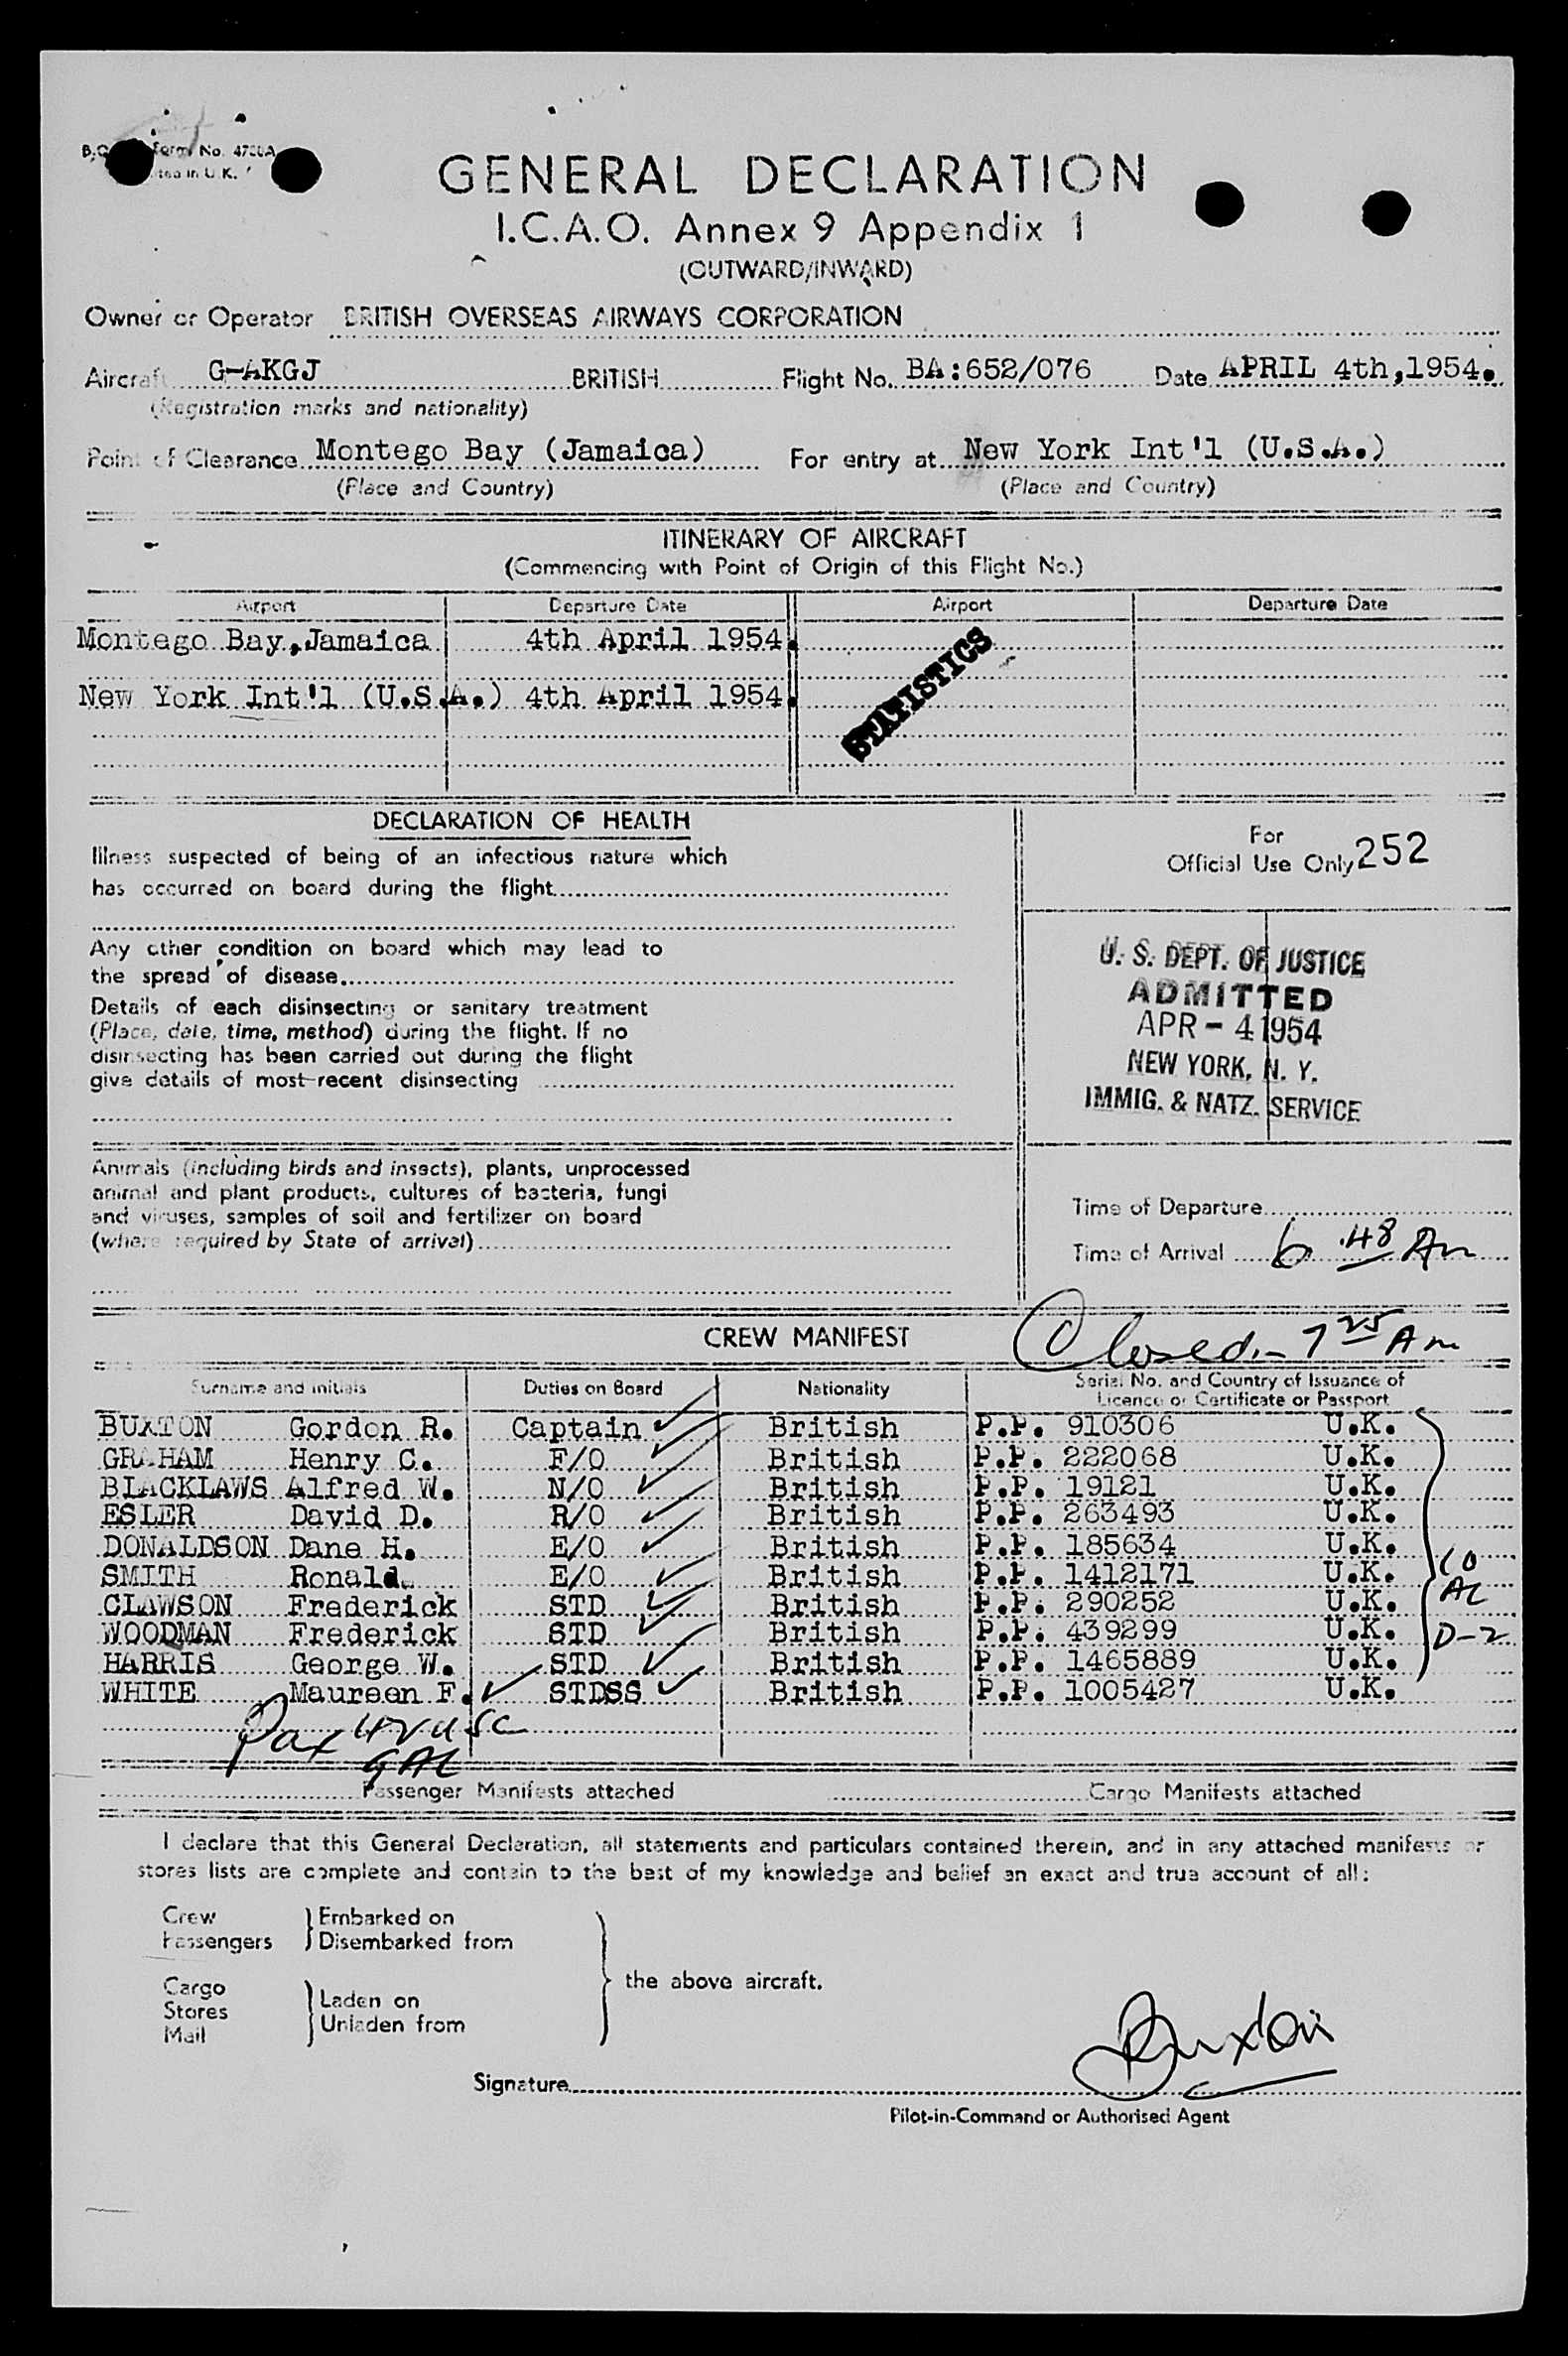 Form No. 4700A
GENERAL DECLARATION
I.C.A.O. Annex 9 Appendix 1
(OUTWARD/INWARD)
Owner or Operator BRITISH OVERSEAS AIRWAYS CORPORATION
Aircraft G-AKGJ BRITISH Flight No. BA:652/076 Date APRIL 4th,1954.
(Registration marks and nationality)
Point of Clearance Montego Bay (Jamaica) For entry at New York Int'l (U.S.A.)
(Place and Country) (Place and Country)
ITINERARY OF AIRCRAFT
(Commencing with Point of Origin of this Flight No.)
Airport Departure Date Airport Departure Date
Montego Bay,Jamaica 4th April 1954.
New York Int'l (U.S.A.) 4th April 1954.
STATISTICS
DECLARATION OF HEALTH
Illness suspected of being of an infectious nature which
has occurred on board during the flight
Any other condition on board which may lead to
the spread of disease
Details of each disinsecting or sanitary treatment
(Place, date, time, method) during the flight. If no
disinsecting has been carried out during the flight
give details of most recent disinsecting
For
Official Use Only 252
U. S. DEPT. OF JUSTICE
ADMITTED
APR - 4 1954
NEW YORK, N. Y.
IMMIG. & NATZ. SERVICE
Animals (including birds and insects), plants, unprocessed
animal and plant products, cultures of bacteria, fungi
and viruses, samples of soil and fertilizer on board
(where required by State of arrival)
Time of Departure
Time of Arrival 6.48 Am
Closed - 7 25 Am
CREW MANIFEST
Surname and initials Duties on Board Nationality Serial No. and Country of Issuance of
Licence or Certificate or Passport
BUXTON Gordon R. Captain British P.P. 910306 U.K.
GRAHAM Henry C. F/O British P.P. 222068 U.K.
BLACKLAWS Alfred W. N/O British P.P. 19121 U.K.
ESLER David D. R/O British P.P. 263493 U.K.
DONALDSON Dane H. E/O British P.P. 185634 U.K.
SMITH Ronald. E/O British P.P. 1412171 U.K.
CLAWSON Frederick STD British P.P. 290252 U.K.
WOODMAN Frederick STD British P.P. 439299 U.K.
HARRIS George W. STD British P.P. 1465889 U.K.
WHITE Maureen F. STDSS British P.P. 1005427 U.K.
10
AL
D-2
Pax 42 USC
9 AL
Passenger Manifests attached Cargo Manifests attached
I declare that this General Declaration, all statements and particulars contained therein, and in any attached manifests or
stores lists are complete and contain to the best of my knowledge and belief an exact and true account of all:
Crew
Passengers
Embarked on
Disembarked from
Cargo
Stores
Mail
Laden on
Unladen from
the above aircraft.
Signature Buxton
Pilot-in-Command or Authorised Agent